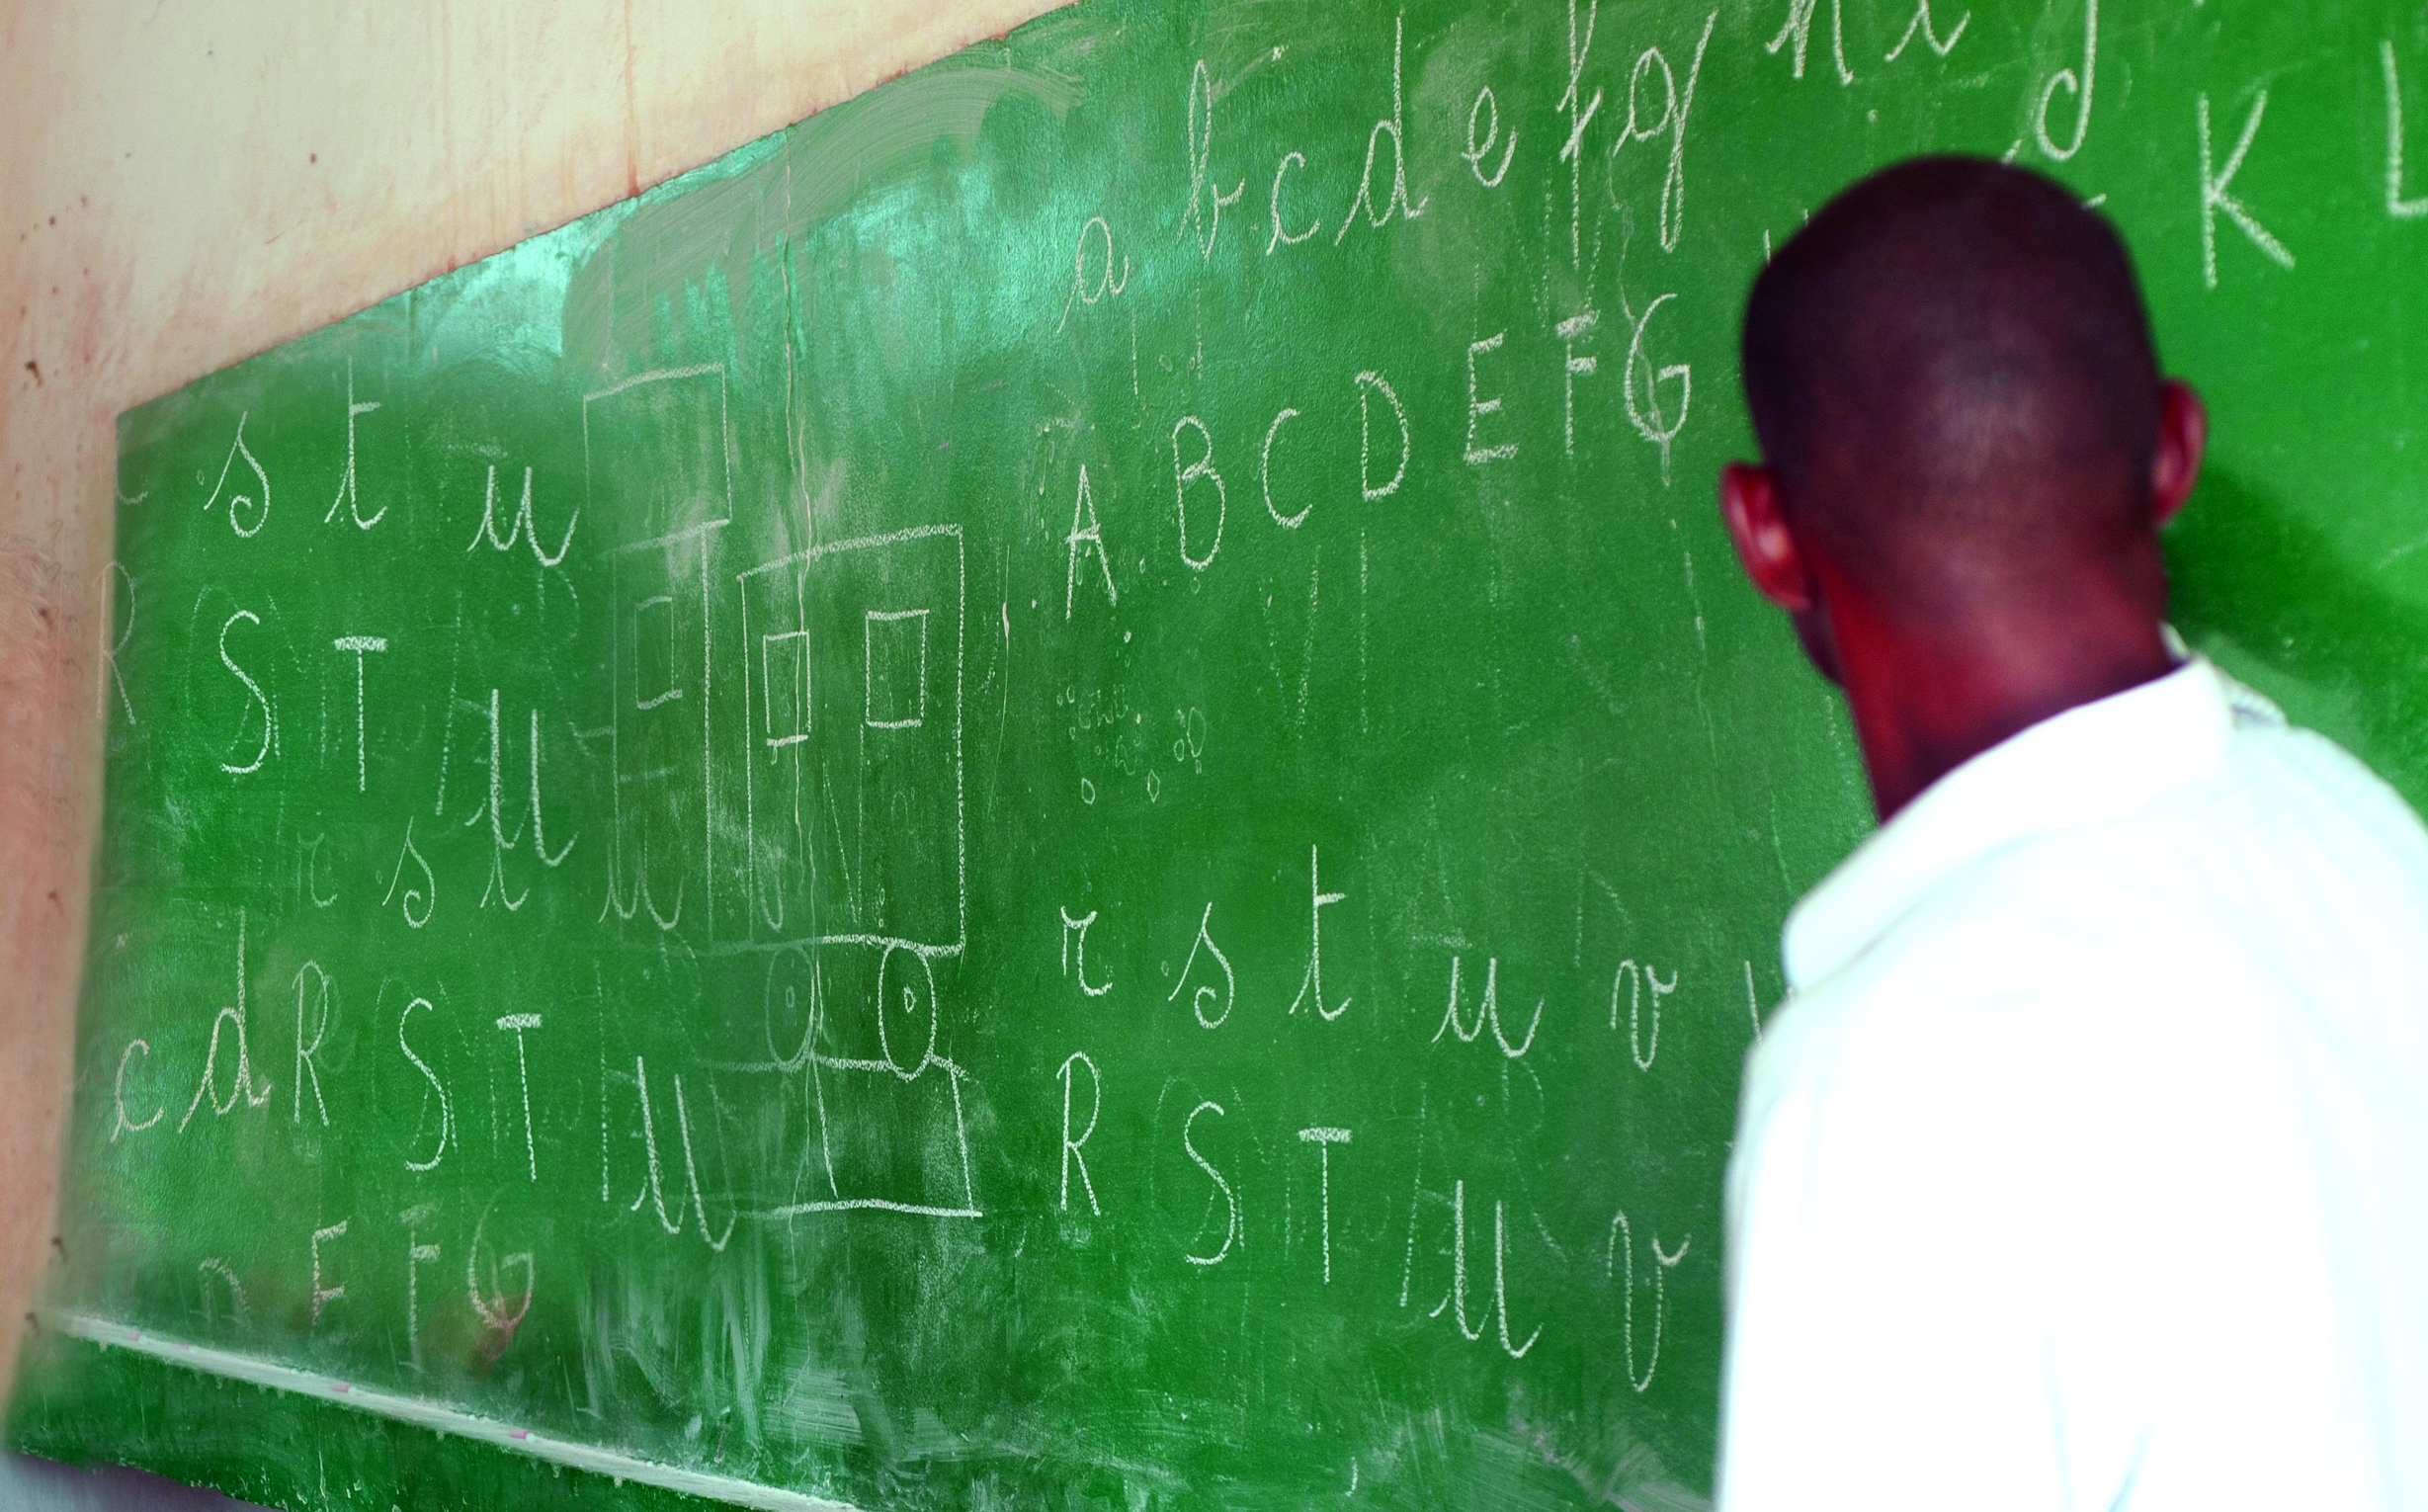 a b c d e f g h i j
A B C D E F G K L
s t u
R S T U
r s t u
c d R S T U
E F G
r s t u v
R S T U V